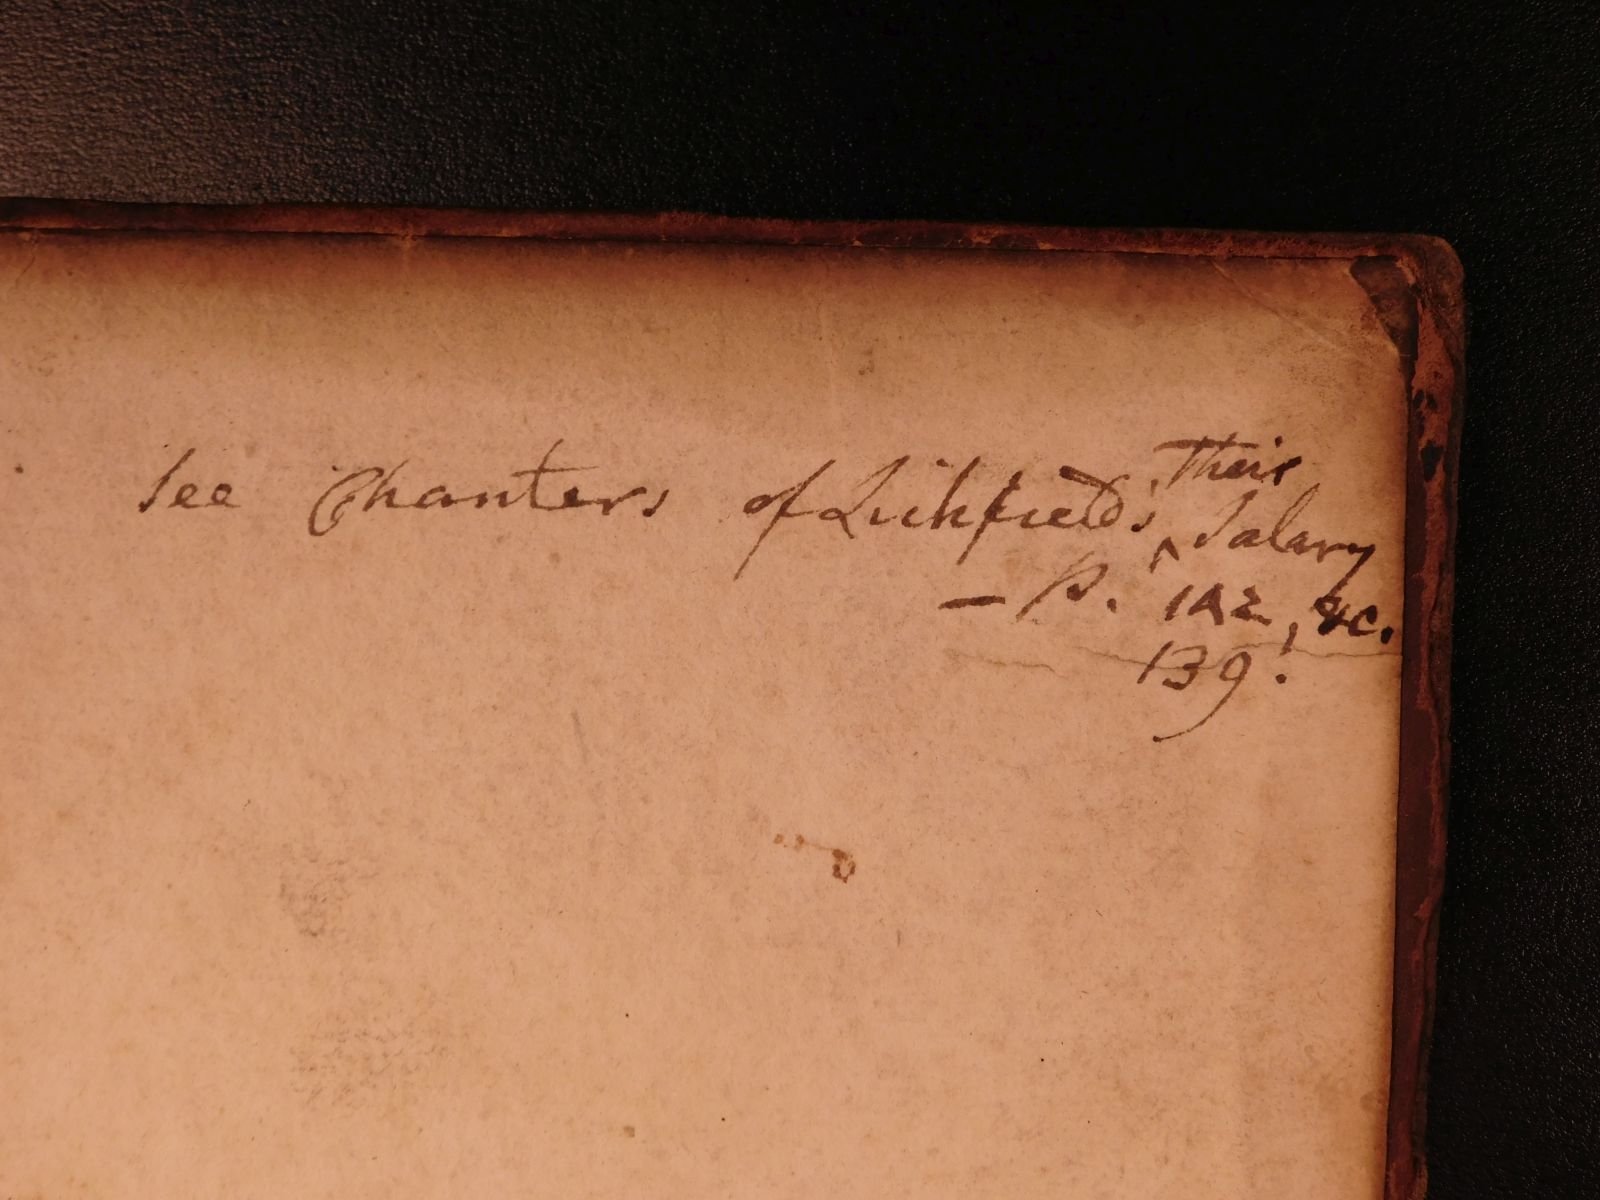 See Chanters of Lichfield's ^ Their Salary
— P. 142, &c.
139.